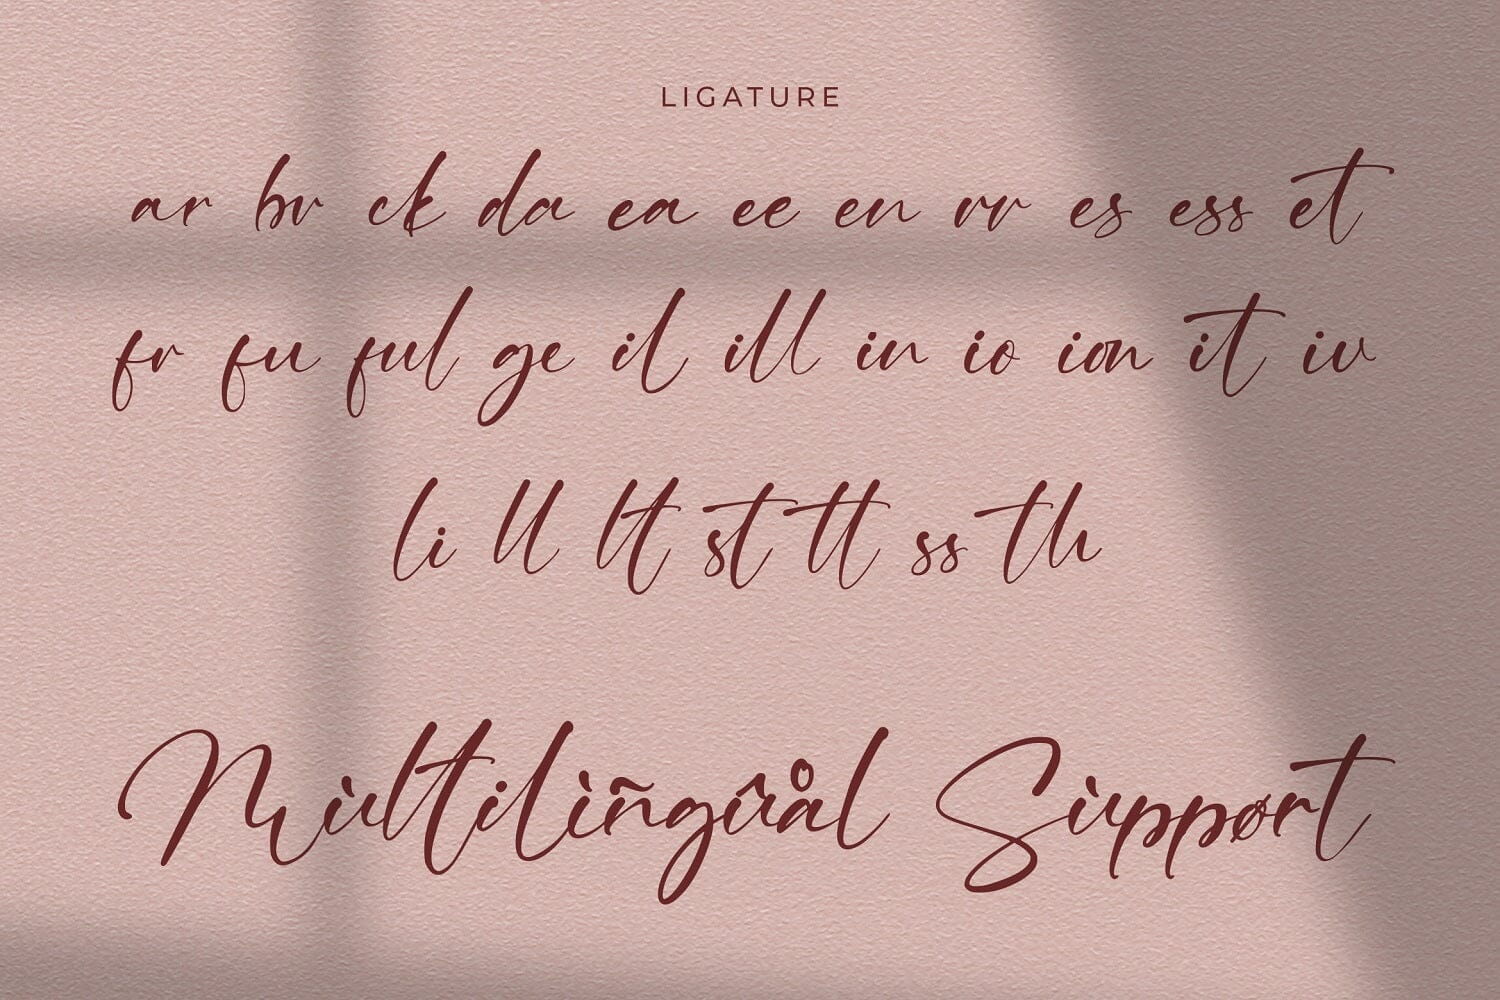 LIGATURE
ar br ck da ea ee en rr es ess et
fr fu ful ge il ill in io ion it iv
li ll lt st tt ss th
Mùltilìñgûrål Sùppørt